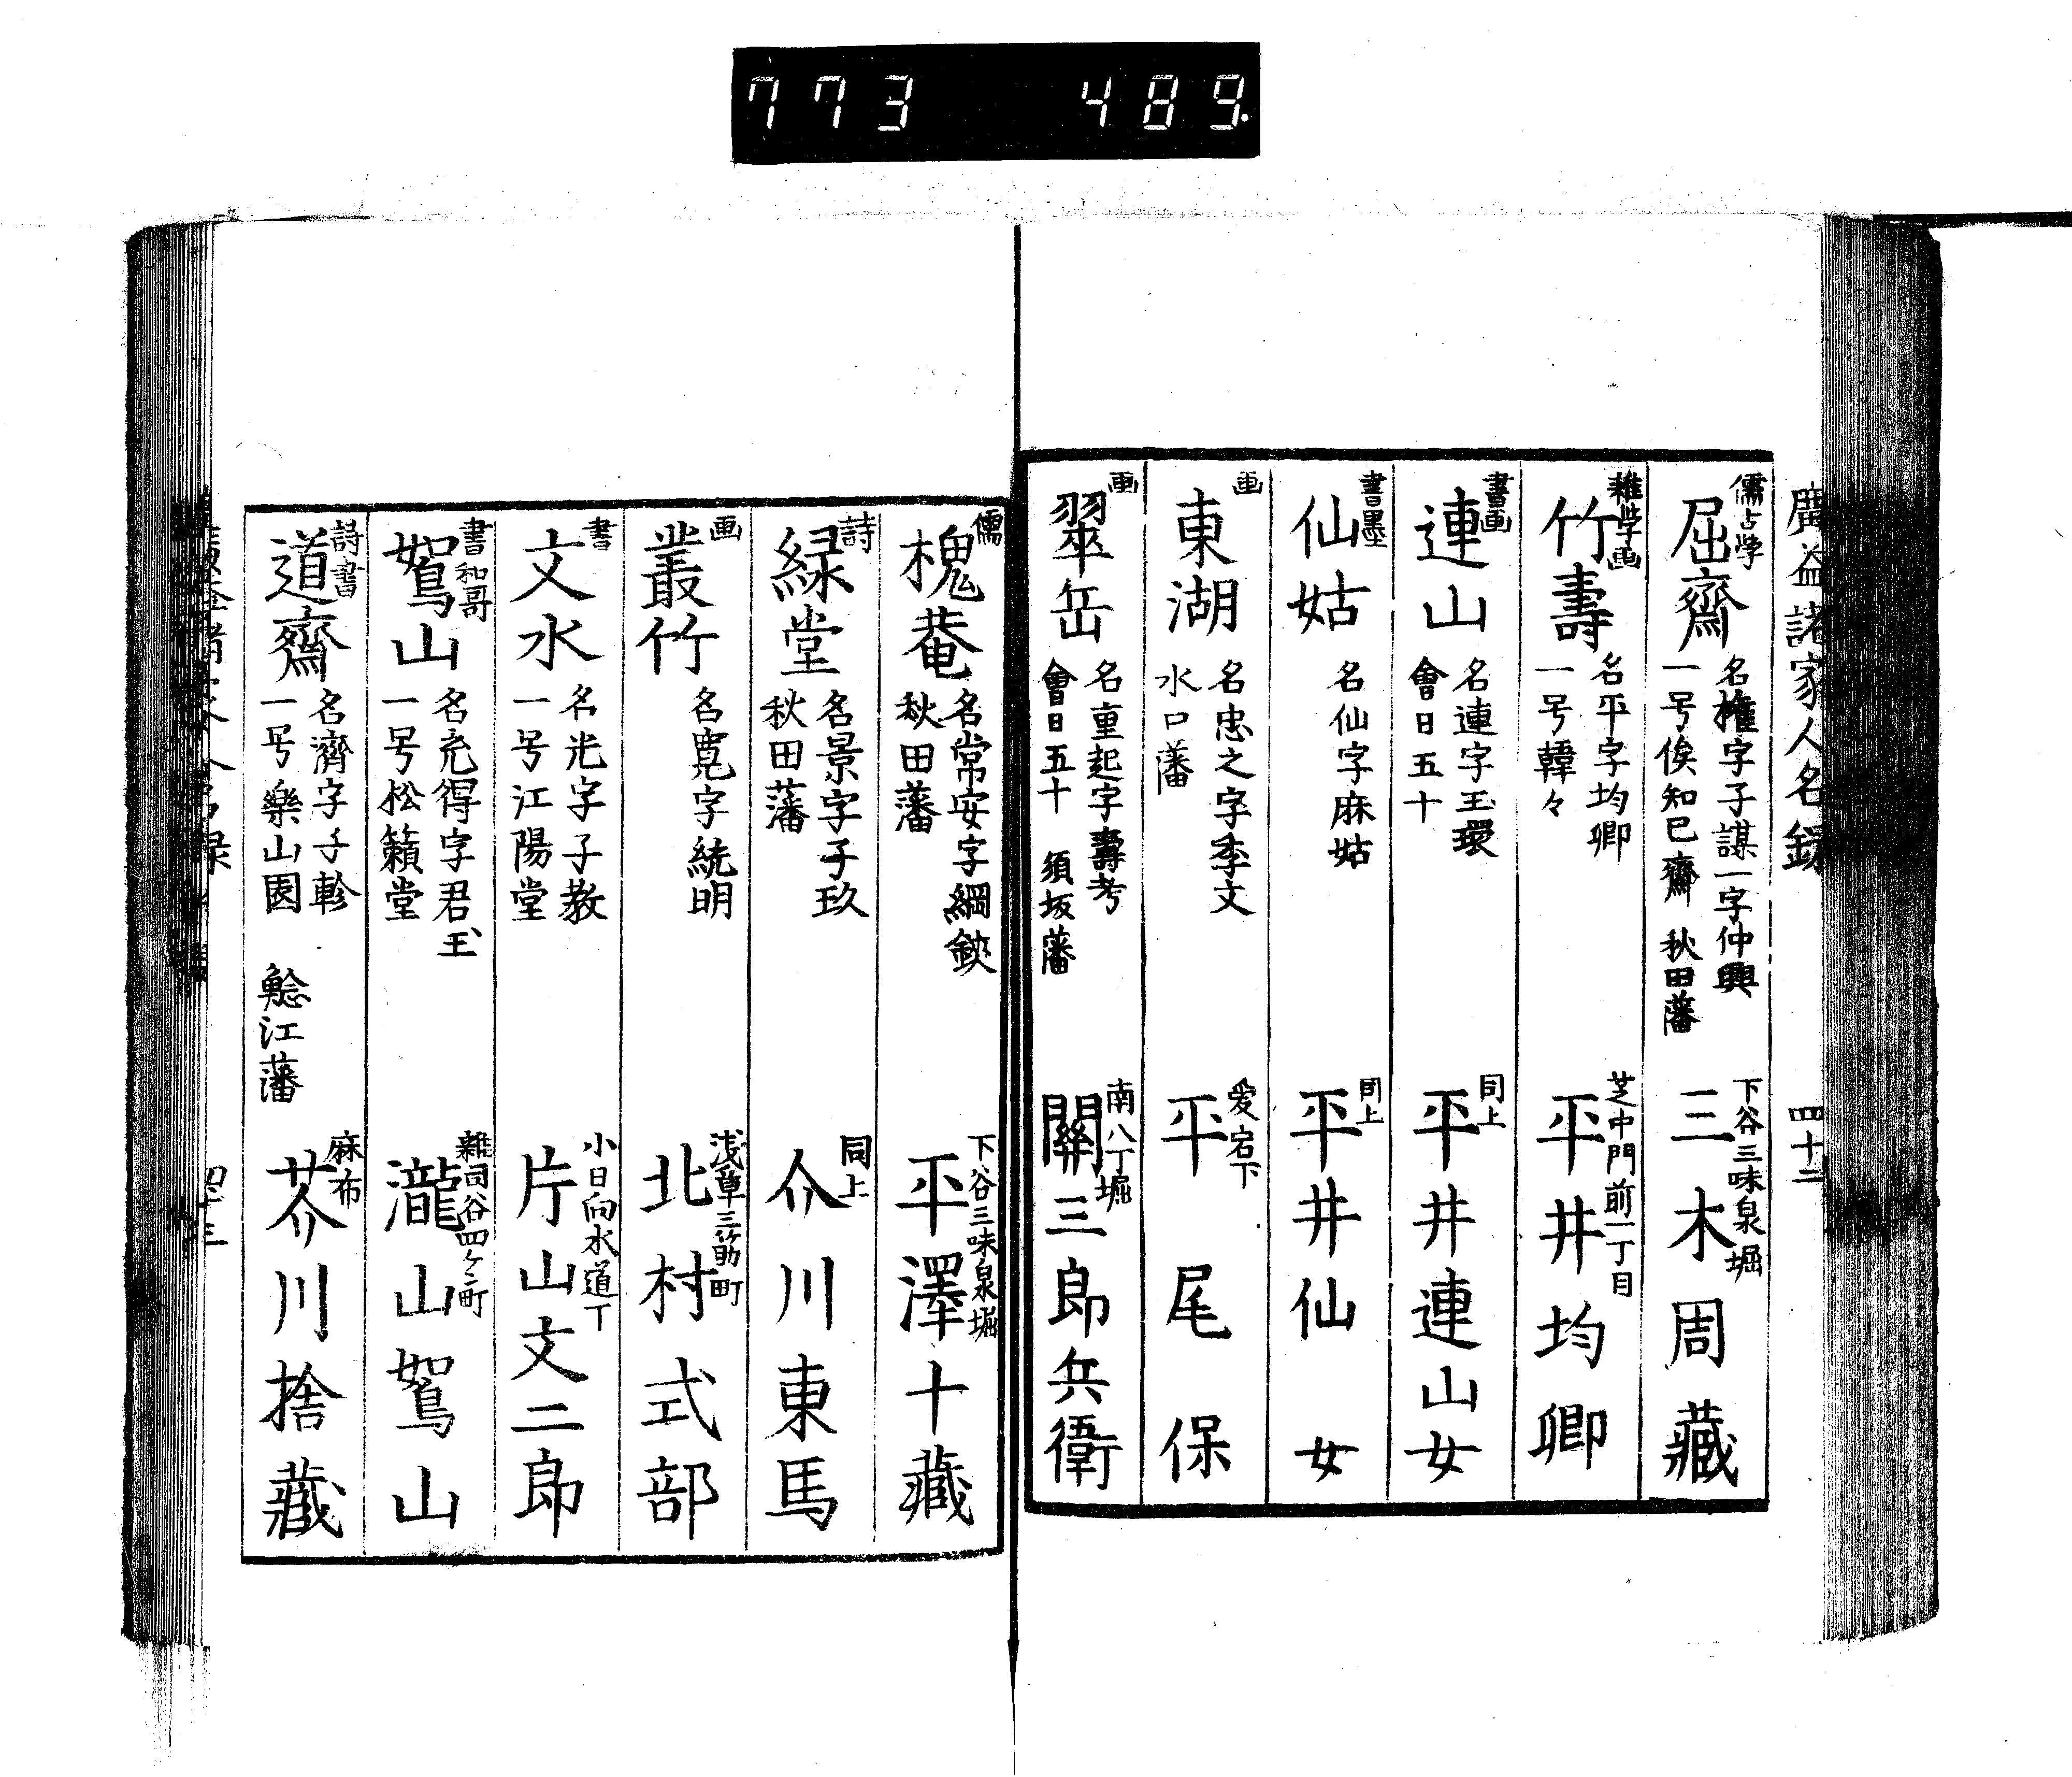 773 489.
廣益諸家人名録
四十二
儒占学
屈齋
名權字子謀一字仲興
一号俟知已齋 秋田藩
下谷三味泉堀
三木周藏
雜学画
竹壽
名平字均卿
一号韡々
芝中門前一丁目
平井均卿
書画
連山
名連字玉環
會日五十
同上
平井連山女
書墨
仙姑
名仙字麻姑
同上
平井仙女
画
東湖
名忠之字季文
水口藩
爱宕下
平尾保
画
翠岳
名重起字壽考
會日五十 須坂藩
南八丁堀
關三郎兵衛
儒
槐菴
名常安字綱鋏
秋田藩
下谷三味泉堀
平澤十藏
詩
緑堂
名景字子玖
秋田藩
同上
介川東馬
画
叢竹
名寛字統明
浅草三筋町
北村式部
書
文水
名光字子教
一号江陽堂
小日向水道丁
片山文二郎
書和哥
鴑山
名充得字君玉
一号松籟堂
雜司谷四ケ町
瀧山鴑山
詩書
道齋
名濟字子軫
一号樂山園 鯰江藩
麻布
芥川捨藏
四十三